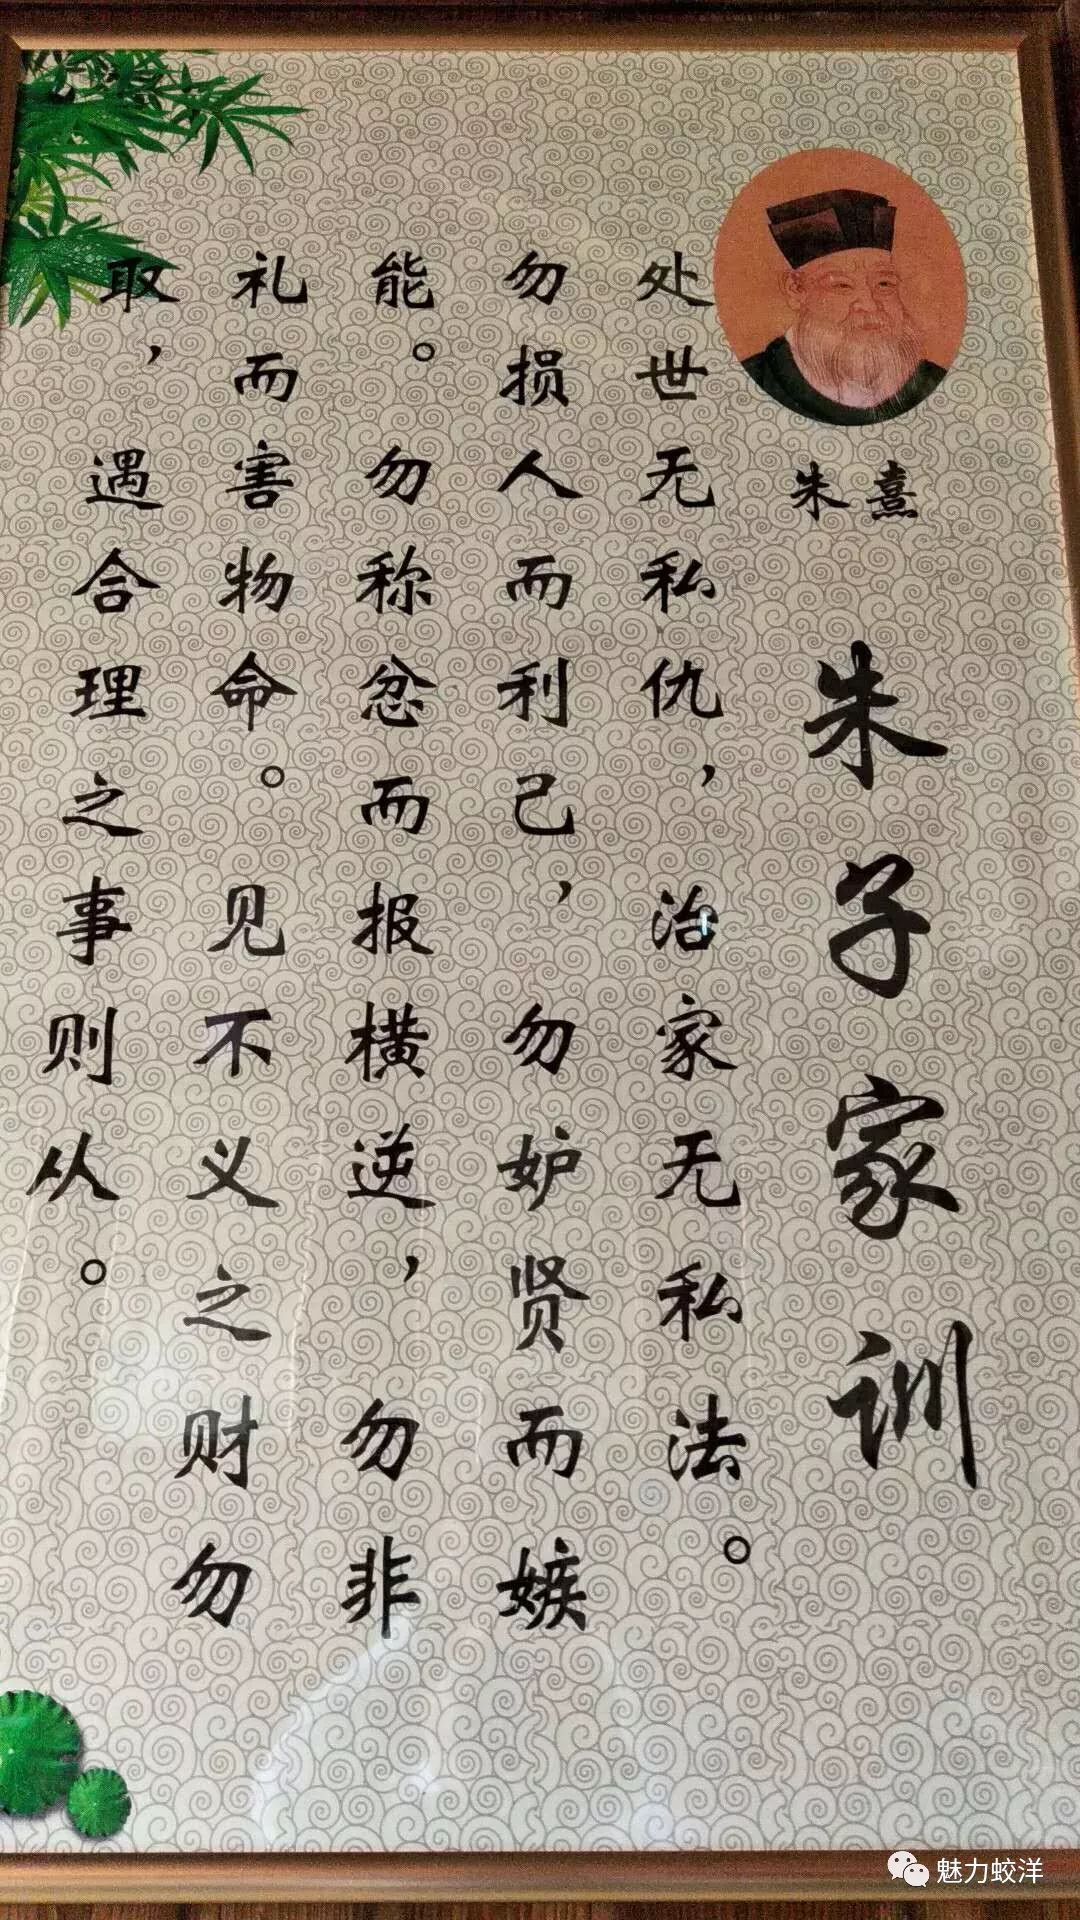 朱熹
朱子家训
处世无私仇，治家无私法。
勿损人而利己，勿妒贤而嫉
能。勿称忿而报横逆，勿非
礼而害物命。见不义之财勿
取，遇合理之事则从。
魅力蛟洋